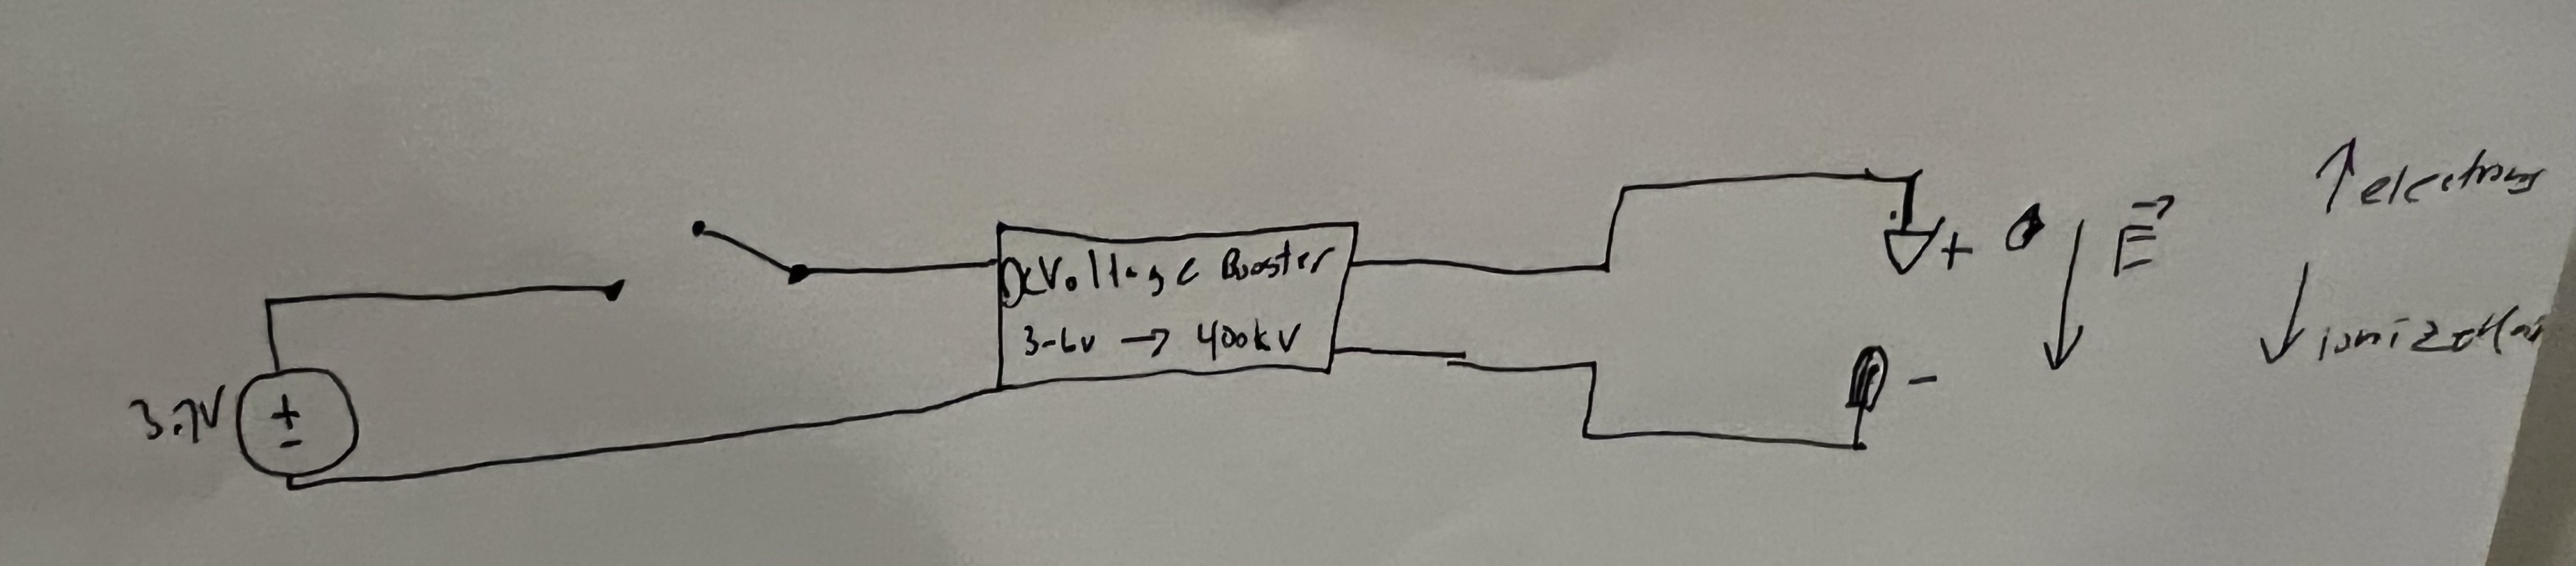 3.7V
+
-
DC Voltage Booster
3-6v → 400kV
+
-
E
↑ electrons
↓ ionization